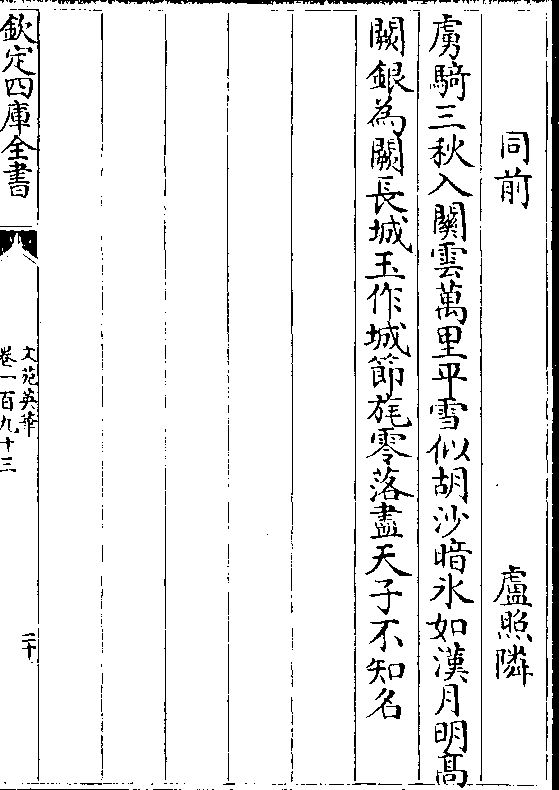 同前　盧照隣
虜騎三秋入關雲萬里平雪似胡沙暗氷如漢月明髙
闕銀為闕長城玉作城節旄零落盡天子不知名
欽定四庫全書
文苑英華
卷一百九十三
二十